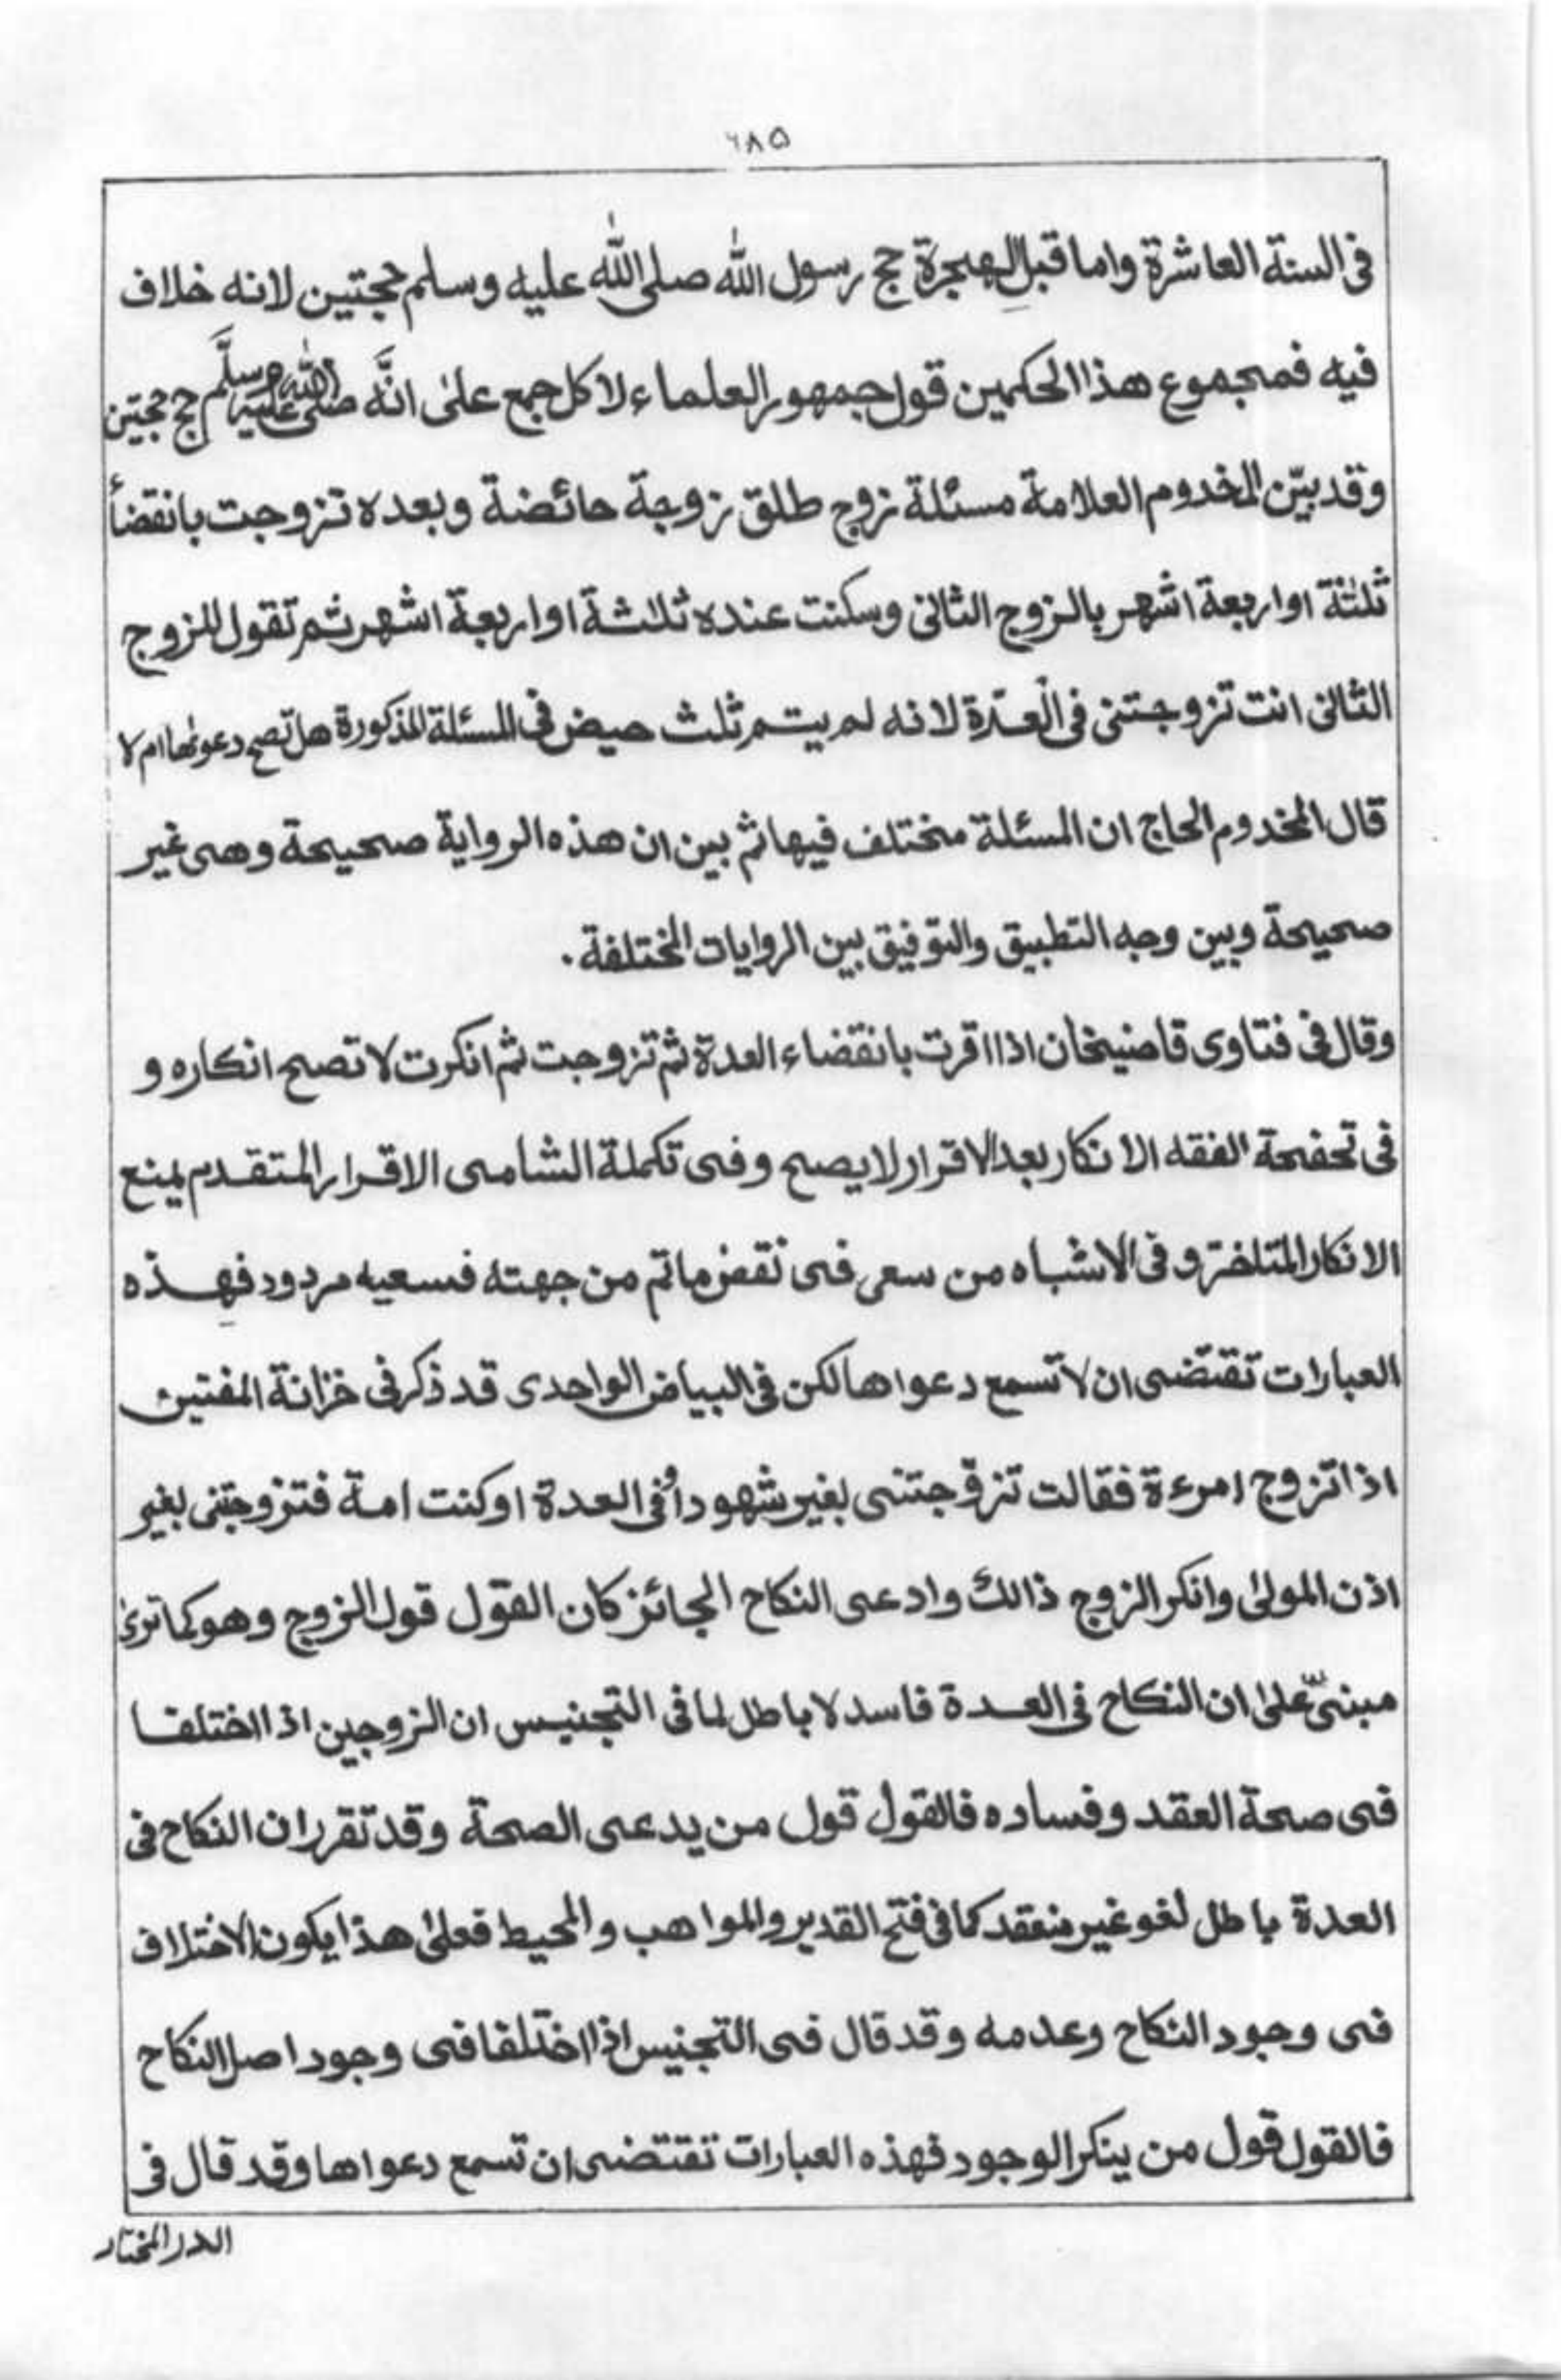 ٦٨٥
فی السنة العاشرة واما قبل الهجرة حج رسول الله صلی الله علیه وسلم حجتین لانه خلاف
فیه فمجموع هذا الحکمین قول جمهور العلماء لا کل جمع علیٰ انَّه صلی الله علیه وسلَّم حج حجتین
وقد بیّن المخدوم العلامة مسئلة زوج طلق زوجة حائضة وبعده تزوجت بانقضأ
ثلثة او اربعة اشهر بالزوج الثانی وسکنت عنده ثلاثة او اربعة اشهر ثم تقول للزوج
الثانی انت تزوجتنی فی العدّة لانه لم یتم ثلث حیض فی المسئلة المذکورة هل تصح دعوٰها ام لا
قال المخدوم الحاج ان المسئلة مختلف فیها ثم بین ان هذه الروایة صحیحة وهی غیر
صحیحة وبین وجه التطبیق والتوفیق بین الروایات المختلفة.
وقال فی فتاوی قاضیخان اذا اقرت بانقضاء العدة ثم تزوجت ثم انکرت لا تصح انکاره و
فی تحفحة الفقه الانکار بعد الاقرار لا یصح وفی تکملة الشامی الاقرار المتقدم یمنع
الانکار المتاخر و فی الاشباه من سعی فی نقض ماتم من جهته فسعیه مردود فهذه
العبارات تقتضی ان لا تسمع دعواها لکن فی البیاض الواحدی قد ذکر فی خزانة المفتین
اذا تزوج امرءة فقالت تزوّجتنی بغیر شهود أو فی العدة او کنت امة فتزوجتنی بغیر
اذن المولیٰ وانکر الزوج ذالك وادعی النکاح الجائز کان القول قول الزوج وهو کما تریٰ
مبنیٌّ علیٰ ان النکاح فی العدة فاسد لا باطل لما فی التجنیس ان الزوجین اذا اختلفا
فی صحة العقد وفساده فالقول قول من یدعی الصحة وقد تقرر ان النکاح فی
العدة باطل لغو غیر منعقد کما فی فتح القدیر والمواهب والمحیط فعلیٰ هذا یکون الاختلاف
فی وجود النکاح وعدمه وقد قال فی التجنیس اذا اختلفا فی وجود اصل النکاح
فالقول قول من ینکر الوجود فهذه العبارات تقتضی ان تسمع دعواها وقد قال فی
الدر المختار